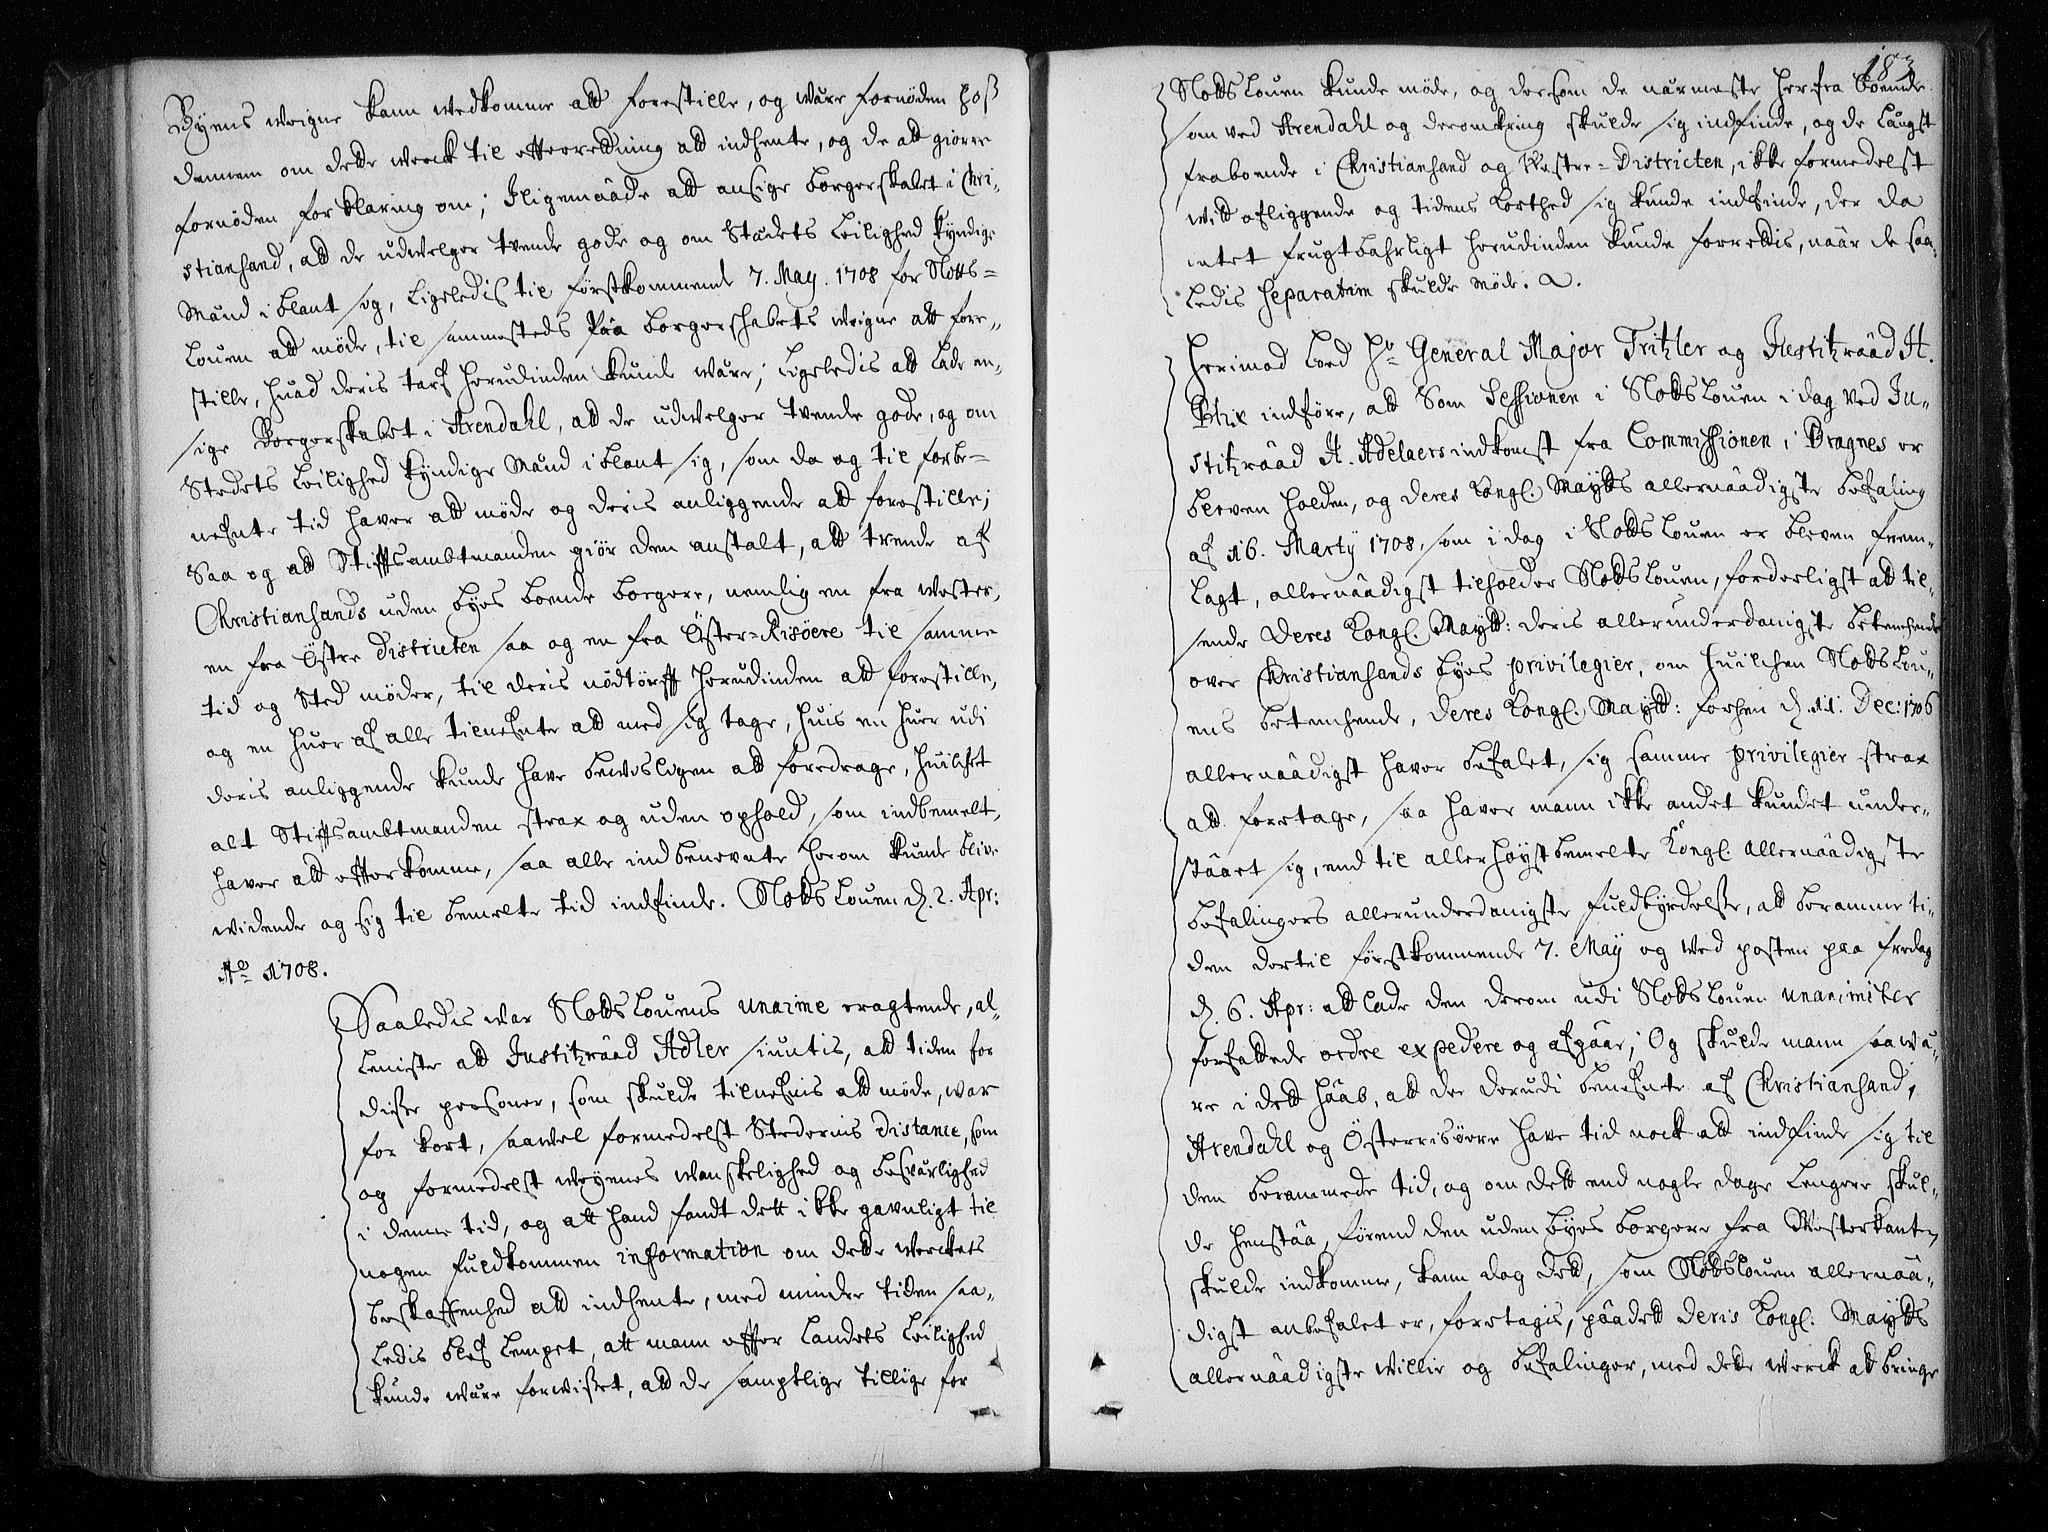 Byens weigne kann wedkomme att forestille, og wäre fornöden hoß
dennem om dette werck til effterretning att indhente, og de att giörre
fornöden forklaring om; Iligemaade att ansige borgerskabet i Chri-
stiansand, att de udwelger twende gode og om Stædets leilighed kyndige
Mænd iblant sig, ligeledis til förstkommende 7. May. 1708 for Slotts-
Louen att möde, til sammesteds paa borgerskabets weigne att fore-
stille, huad deris tarf herudinden kunde wäre; ligeledis att lade an-
sige Borgerskabet i Arendahl, att de udwelger twende gode, og om
Stedets leilighed kyndige Mænd iblant sig, som da og til forbe-
nefnte tid hawer att möde og deris anliggende att forestille;
Saa og att Stiffts ambtmanden giör den anstalt, att twende af
Christiansands uden byes boende borgere, nemlig en fra wester,
en fra Östre Districten saa og en fra Öster-Risöere til samme
tid og Sted möder, til deris nödtörfft herudinden att forestille,
og en huer af alle tilnefnte att med sig tage, huis en huer udi
deris anliggende kunde hawe bewislegen att foredrage, huilchet
alt Stiffts ambtmanden strax og uden ophold, som indbemelt,
hawer att effterkomme, saa alle indbenevnte herom kunde blive
widende og sig til bemelte tid indfinde. Slotts Louen d. 2. Apr:
Ao 1708.
Saaledis war Slotts Louens unanime eragtende, al-
leniste att Justitzraad Adler siuntis, att tiden for
disse persones, som skulde tilnefnis att möde, war
for kort, saawel formedelst Stedernis distance, som
og formedelst weyenes wanskelighed og beswärlighed
i denne tid, og att hand fandt dett ikke gavnligt til
nogen fuldkommen information om dette werckets
beskaffenhed att indhente, med mindre tiden saa-
ledis blef lempet, att mann effter landets leilighed
kunde wäre forwisset, att de samptlige tillige for
183
Slotts Louen kunde möde, og dersom de nærmeste herfra boende
som ved Arendahl og deromkring skulde sig indfinde, og de längst
fraboende i Christiansand og Westre-Districten, ikke formedelst
wid afliggende og tidens korthed sig kunde indfinde, der da
intet frugtbahrligt herudinden kunde forrettis, naar de saa-
ledis separatim skulde möde.
Herimod loed Hr General Major Tritzler og Justitzraad H.
Blix indföre, att Som Sessionen i Slotts Louen idag ved Ju-
stitzraad H. Adelaers indkomst fra Commissionen i Bragnes er
bleven holden, og Deres Kongl. Maytts allernaadigste befaling
af 16. Marty 1708, som idag i Slotts Louen er bleven frem-
lagt, allernaadigst tilholder Slotts Louen, forderligst att til-
sende Deres Kongl. Maytt: deris allerunderdanigste betenchende
over Christiansands byes privilegier, om huilchen Slotts Lou-
ens betenchende, Deres Kongl. Maytt: forhen d. 11. Dec: 1706
allernaadigst haver befalet, sig samme privilegier strax
att foretage, saa haver mann ikke andet kundet under-
staaet sig, end til allerhöystbemelte Kongl. allernaadigste
befalingers allerunderdanigste fuldbyrdelse, att beramme ti-
den dertil förstkommende 7. May og ved posten paa fredag
d. 6. Apr: att lade den derom udi Slotts Louen unanimiter
forfattede ordre expedere og afgaae; Og skulde mann saa wä-
re i dett haab, att de derudi benefnte af Christiansand,
Arendahl og Österrisöere have tid nock att indfinde sig til
den berammede tid, og om dett end nogle dage lengere skul-
de henstaa, förend den uden byes borgere fra Westerkanten
skulde indkomme, kann dog dett, som Slottslouen allernaa-
digst anbefalet er, foretagis, paadett Deris Kongl. Maytts
allernaadigste willie og befalinger, med dette werck att bringe